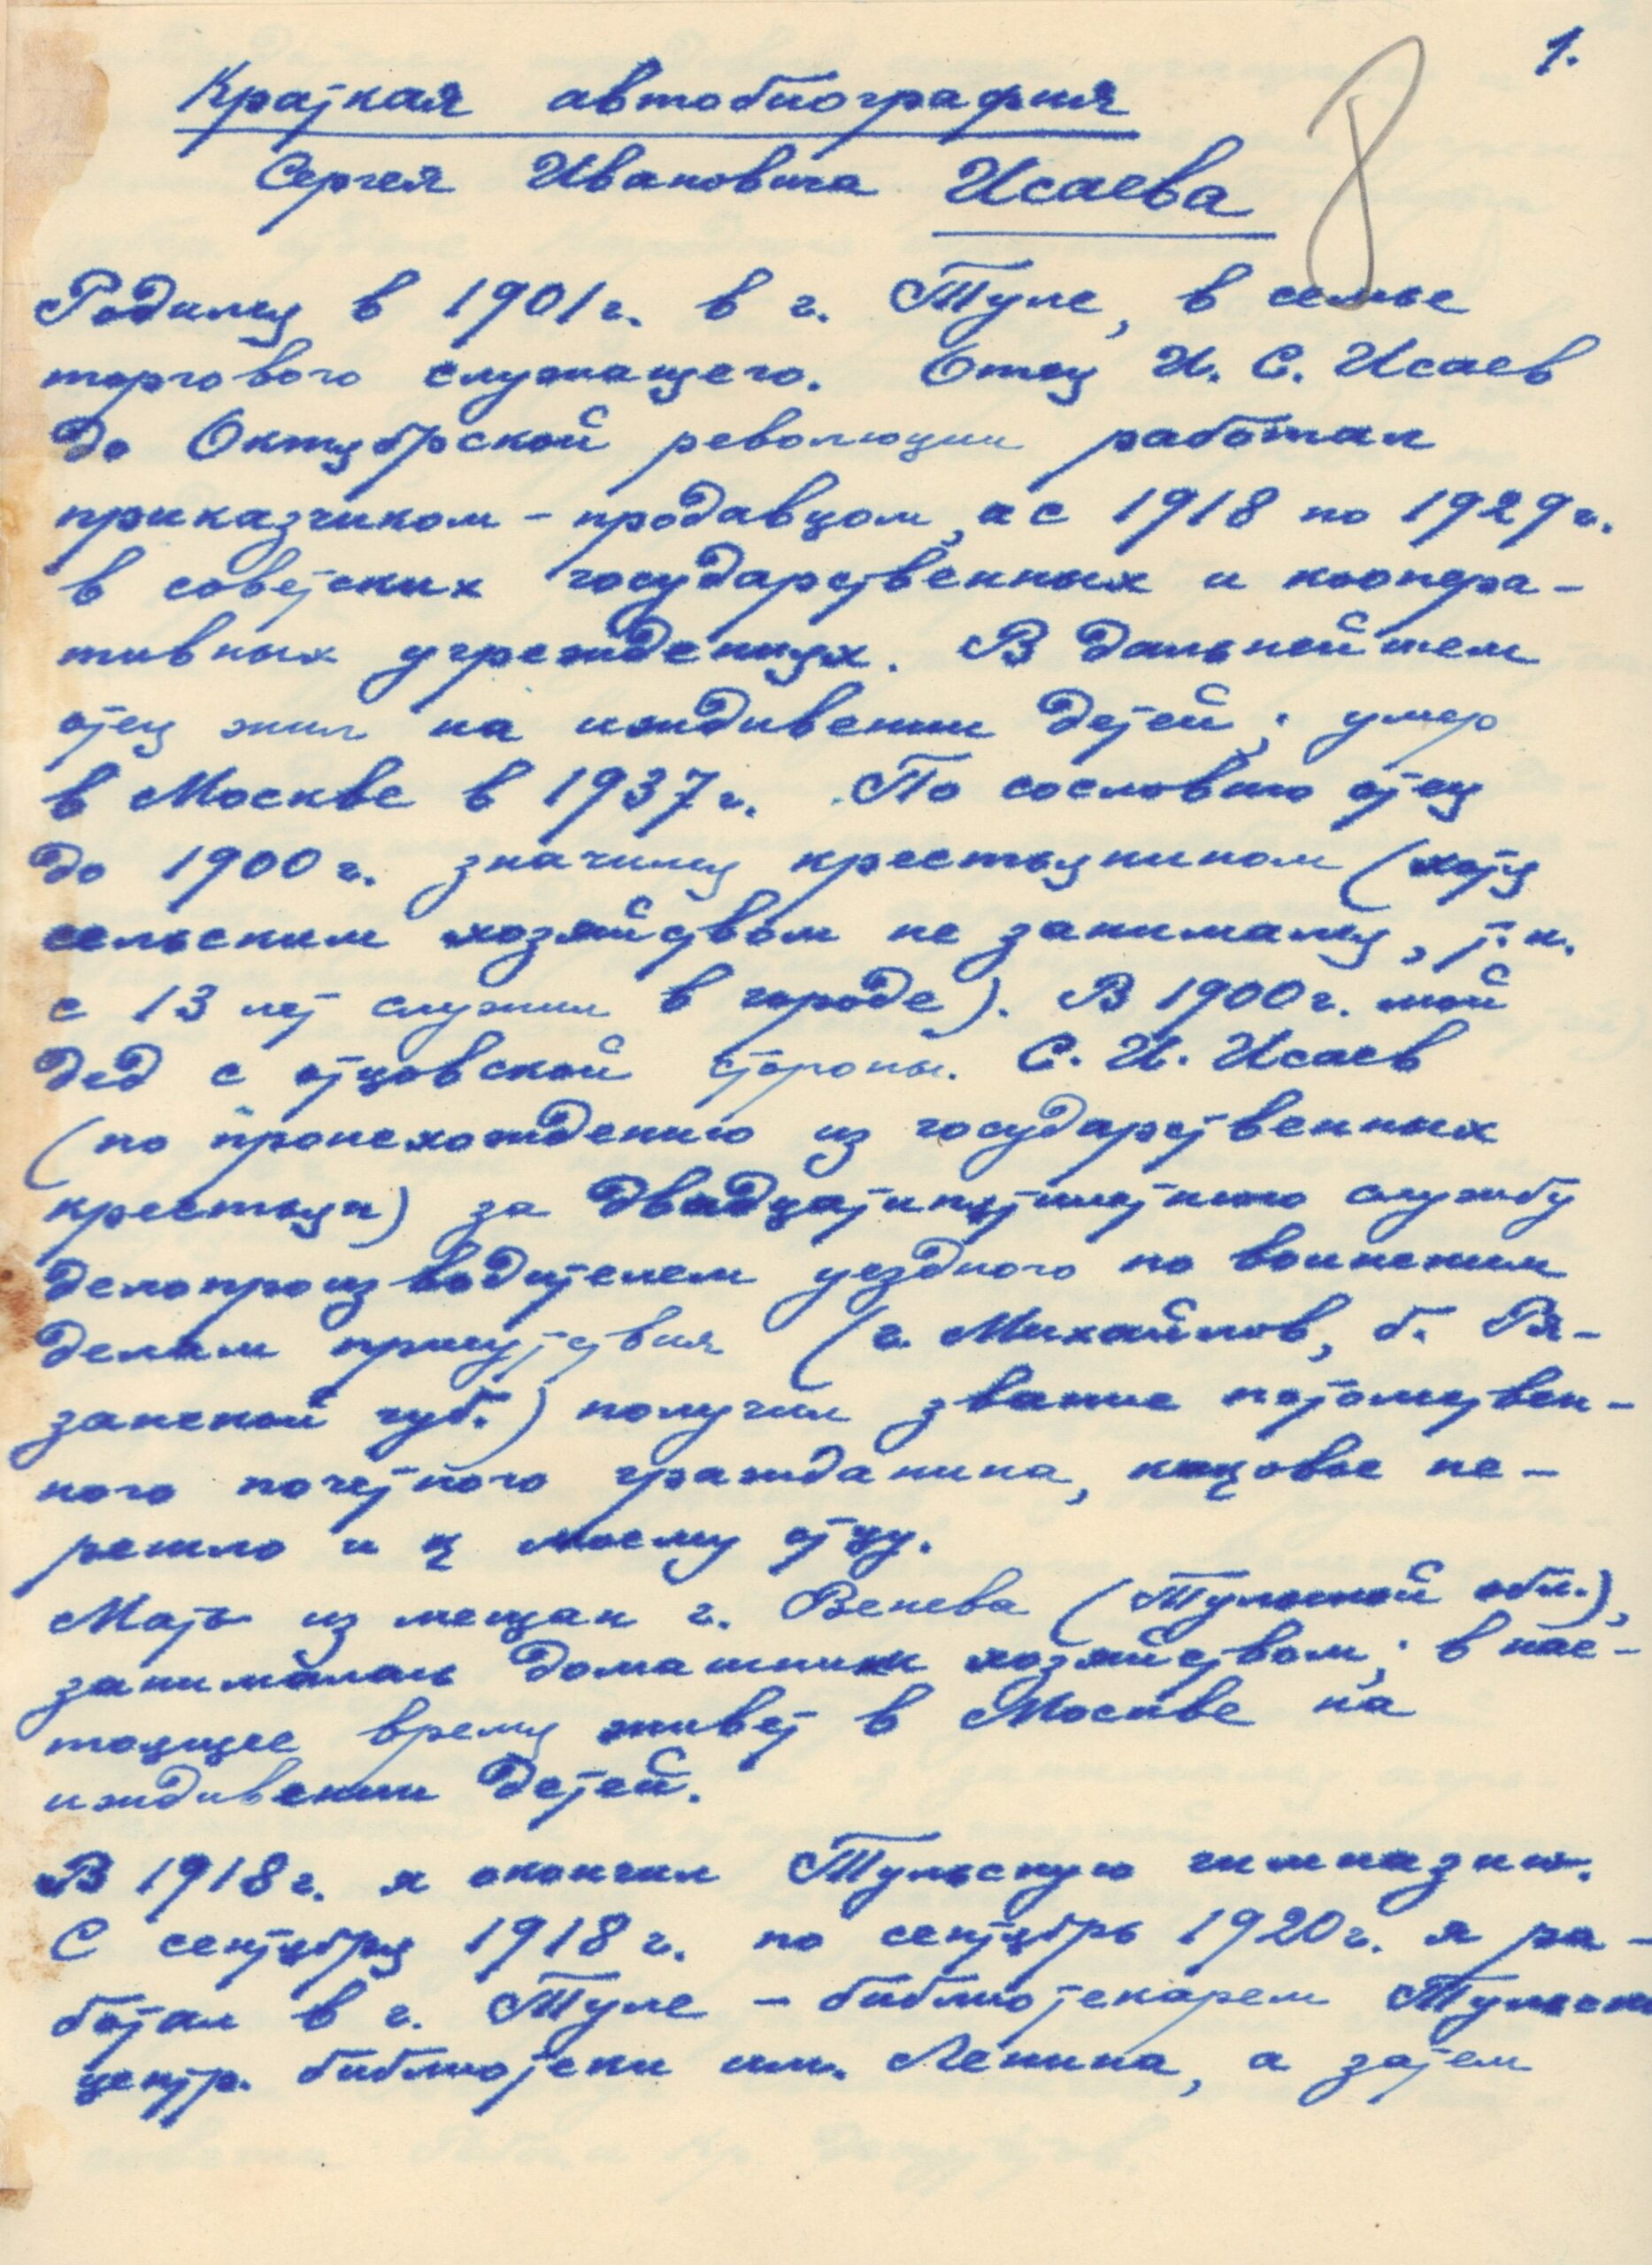 1.
Краткая автобиография
Сергея Ивановича Исаева
Родился в 1901 г. в г. Туле, в семье
торгового служащего. Отец И. С. Исаев
до Октябрьской революции работал
приказчиком - продавцом, а с 1918 по 1929 г.
в советских государственных и коопера-
тивных учреждениях. В дальнейшем
отец жил на иждивении детей; умер
в Москве в 1937 г. По сословию отец
до 1900 г. значился крестьянином (хотя
сельским хозяйством не занимался, т. к.
с 13 лет служил в городе). В 1900 г. мой
дед с отцовской стороны. С. И. Исаев
(по происхождению из государственных
крестьян) за двадцатипятилетнюю службу
делопроизводителем уездного по воинским
делам присутствия (г. Михайлов, б. Ря-
занской губ.) получил звание потомствен-
ного почетного гражданина, каковое пе-
решло и к моему отцу.
Мать из мещан г. Венева (Тульской обл.),
занималась домашним хозяйством; в нас-
тоящее время живет в Москве на
иждивении детей.
В 1918 г. я окончил Тульскую гимназию.
С сентября 1918 г. по сентябрь 1920 г. я ра-
ботал в г. Туле - библиотекарем Тульск
центр. библиотеки им. Ленина, а затем